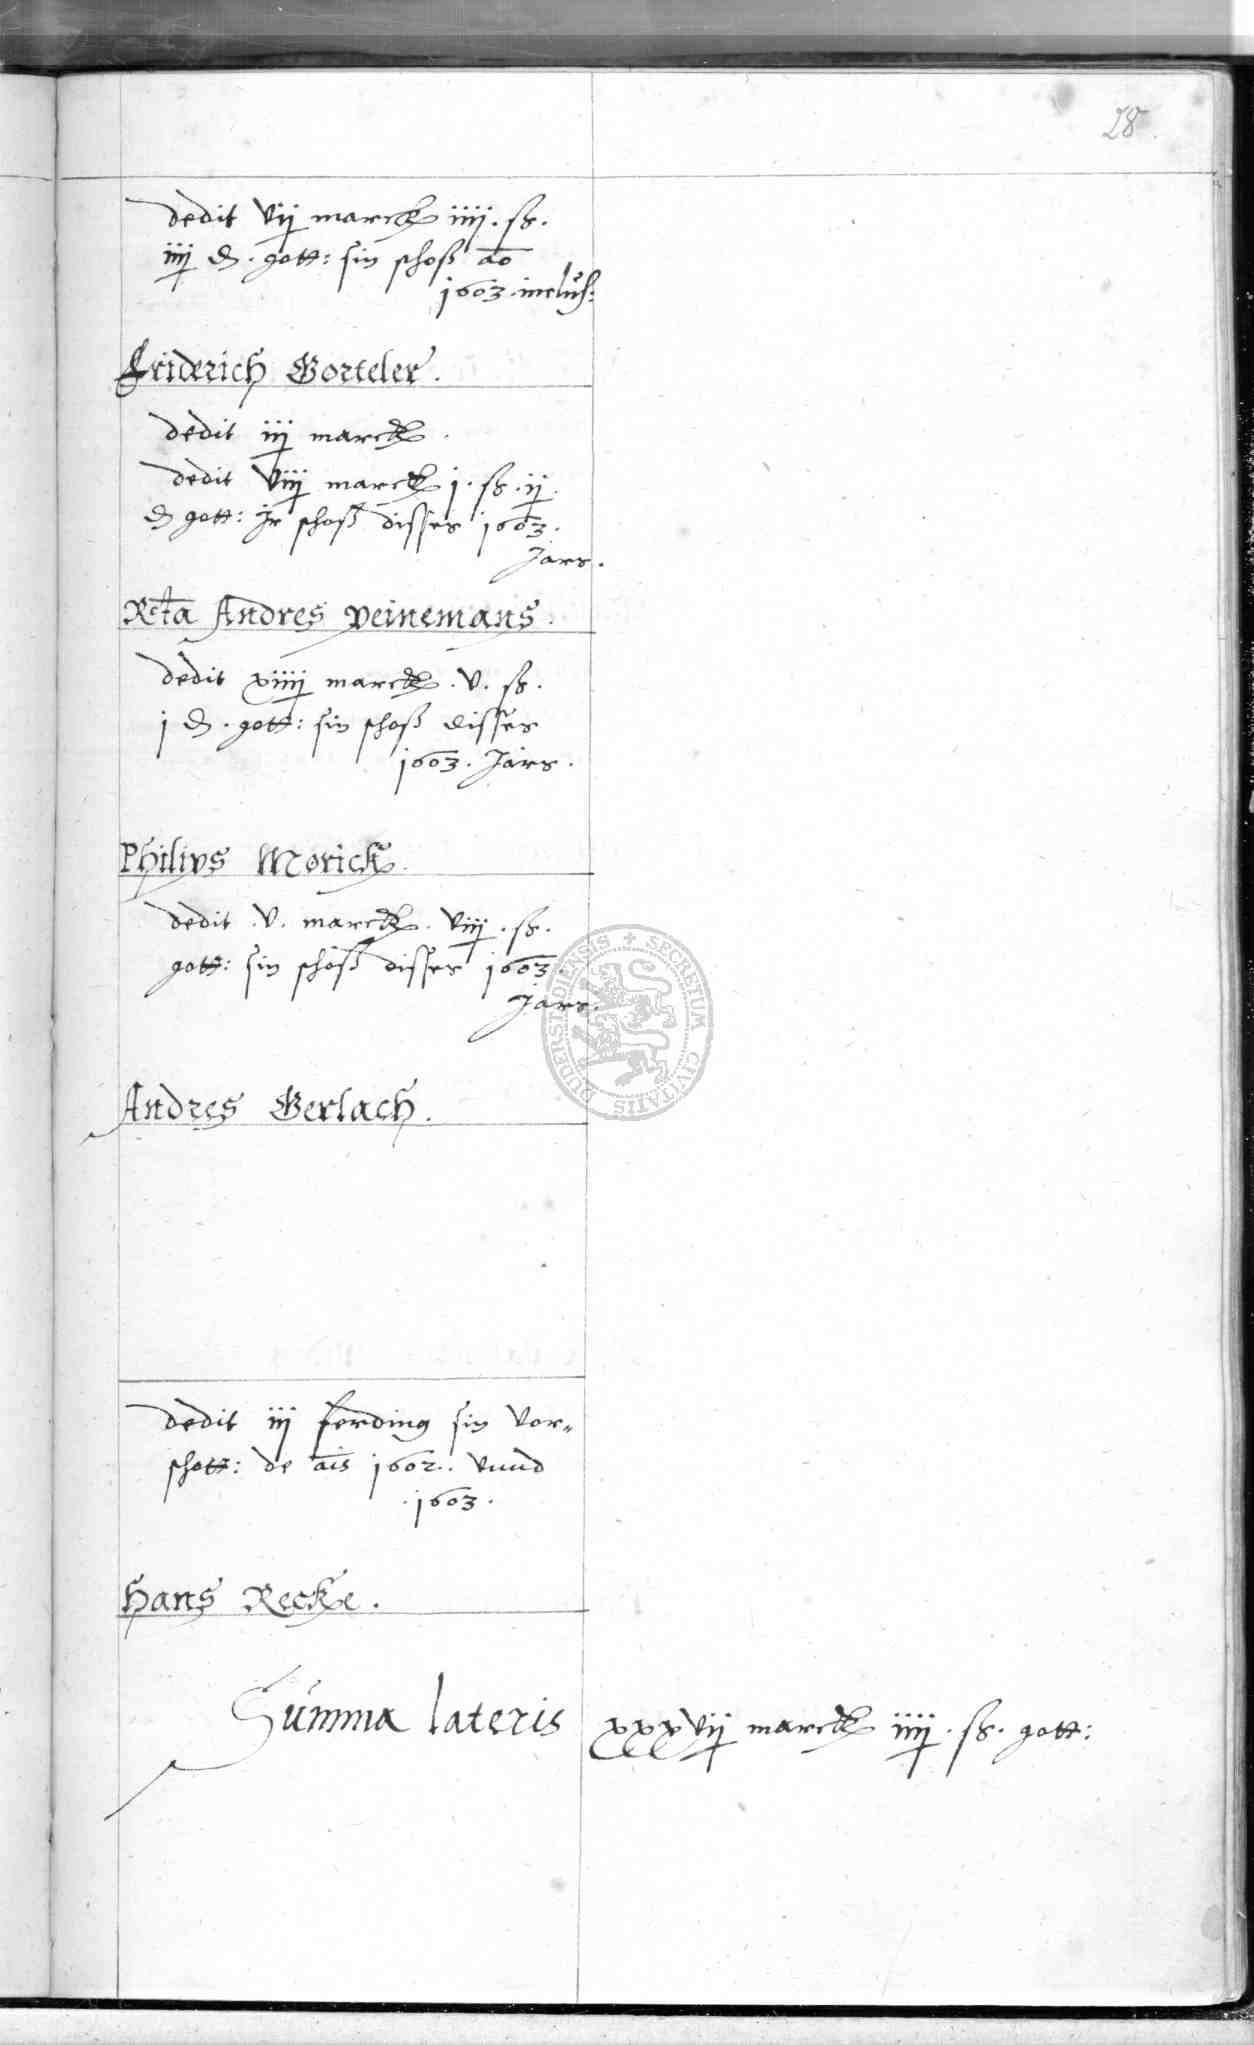 28.
dedit vij marck iiij. ß.
iiij d. gott: sin schoß ao
1603. inclus:
Friderich Gorteler.
dedit iij marck.
dedit viij marck j. ß. ij.
d gott: Jr schoß disses 1603.
Jars.
Rcta Andres Peinemans.
dedit xiiij marck. v. ß.
j d. gott: sin schoß disses
1603. Jars.
Philips Morick.
dedit v. marck. viij. ß.
gott: sin schoß disses 1603.
Jars.
SECRETUM CIVITATIS DUDERSTADIENSIS
Andres Gerlach.
dedit iij ferding sin vor-
schott: de ais 1602. vnnd
.1603.
Hans Recke.
Summa lateris xxxvij marck iiij. ß. gott: